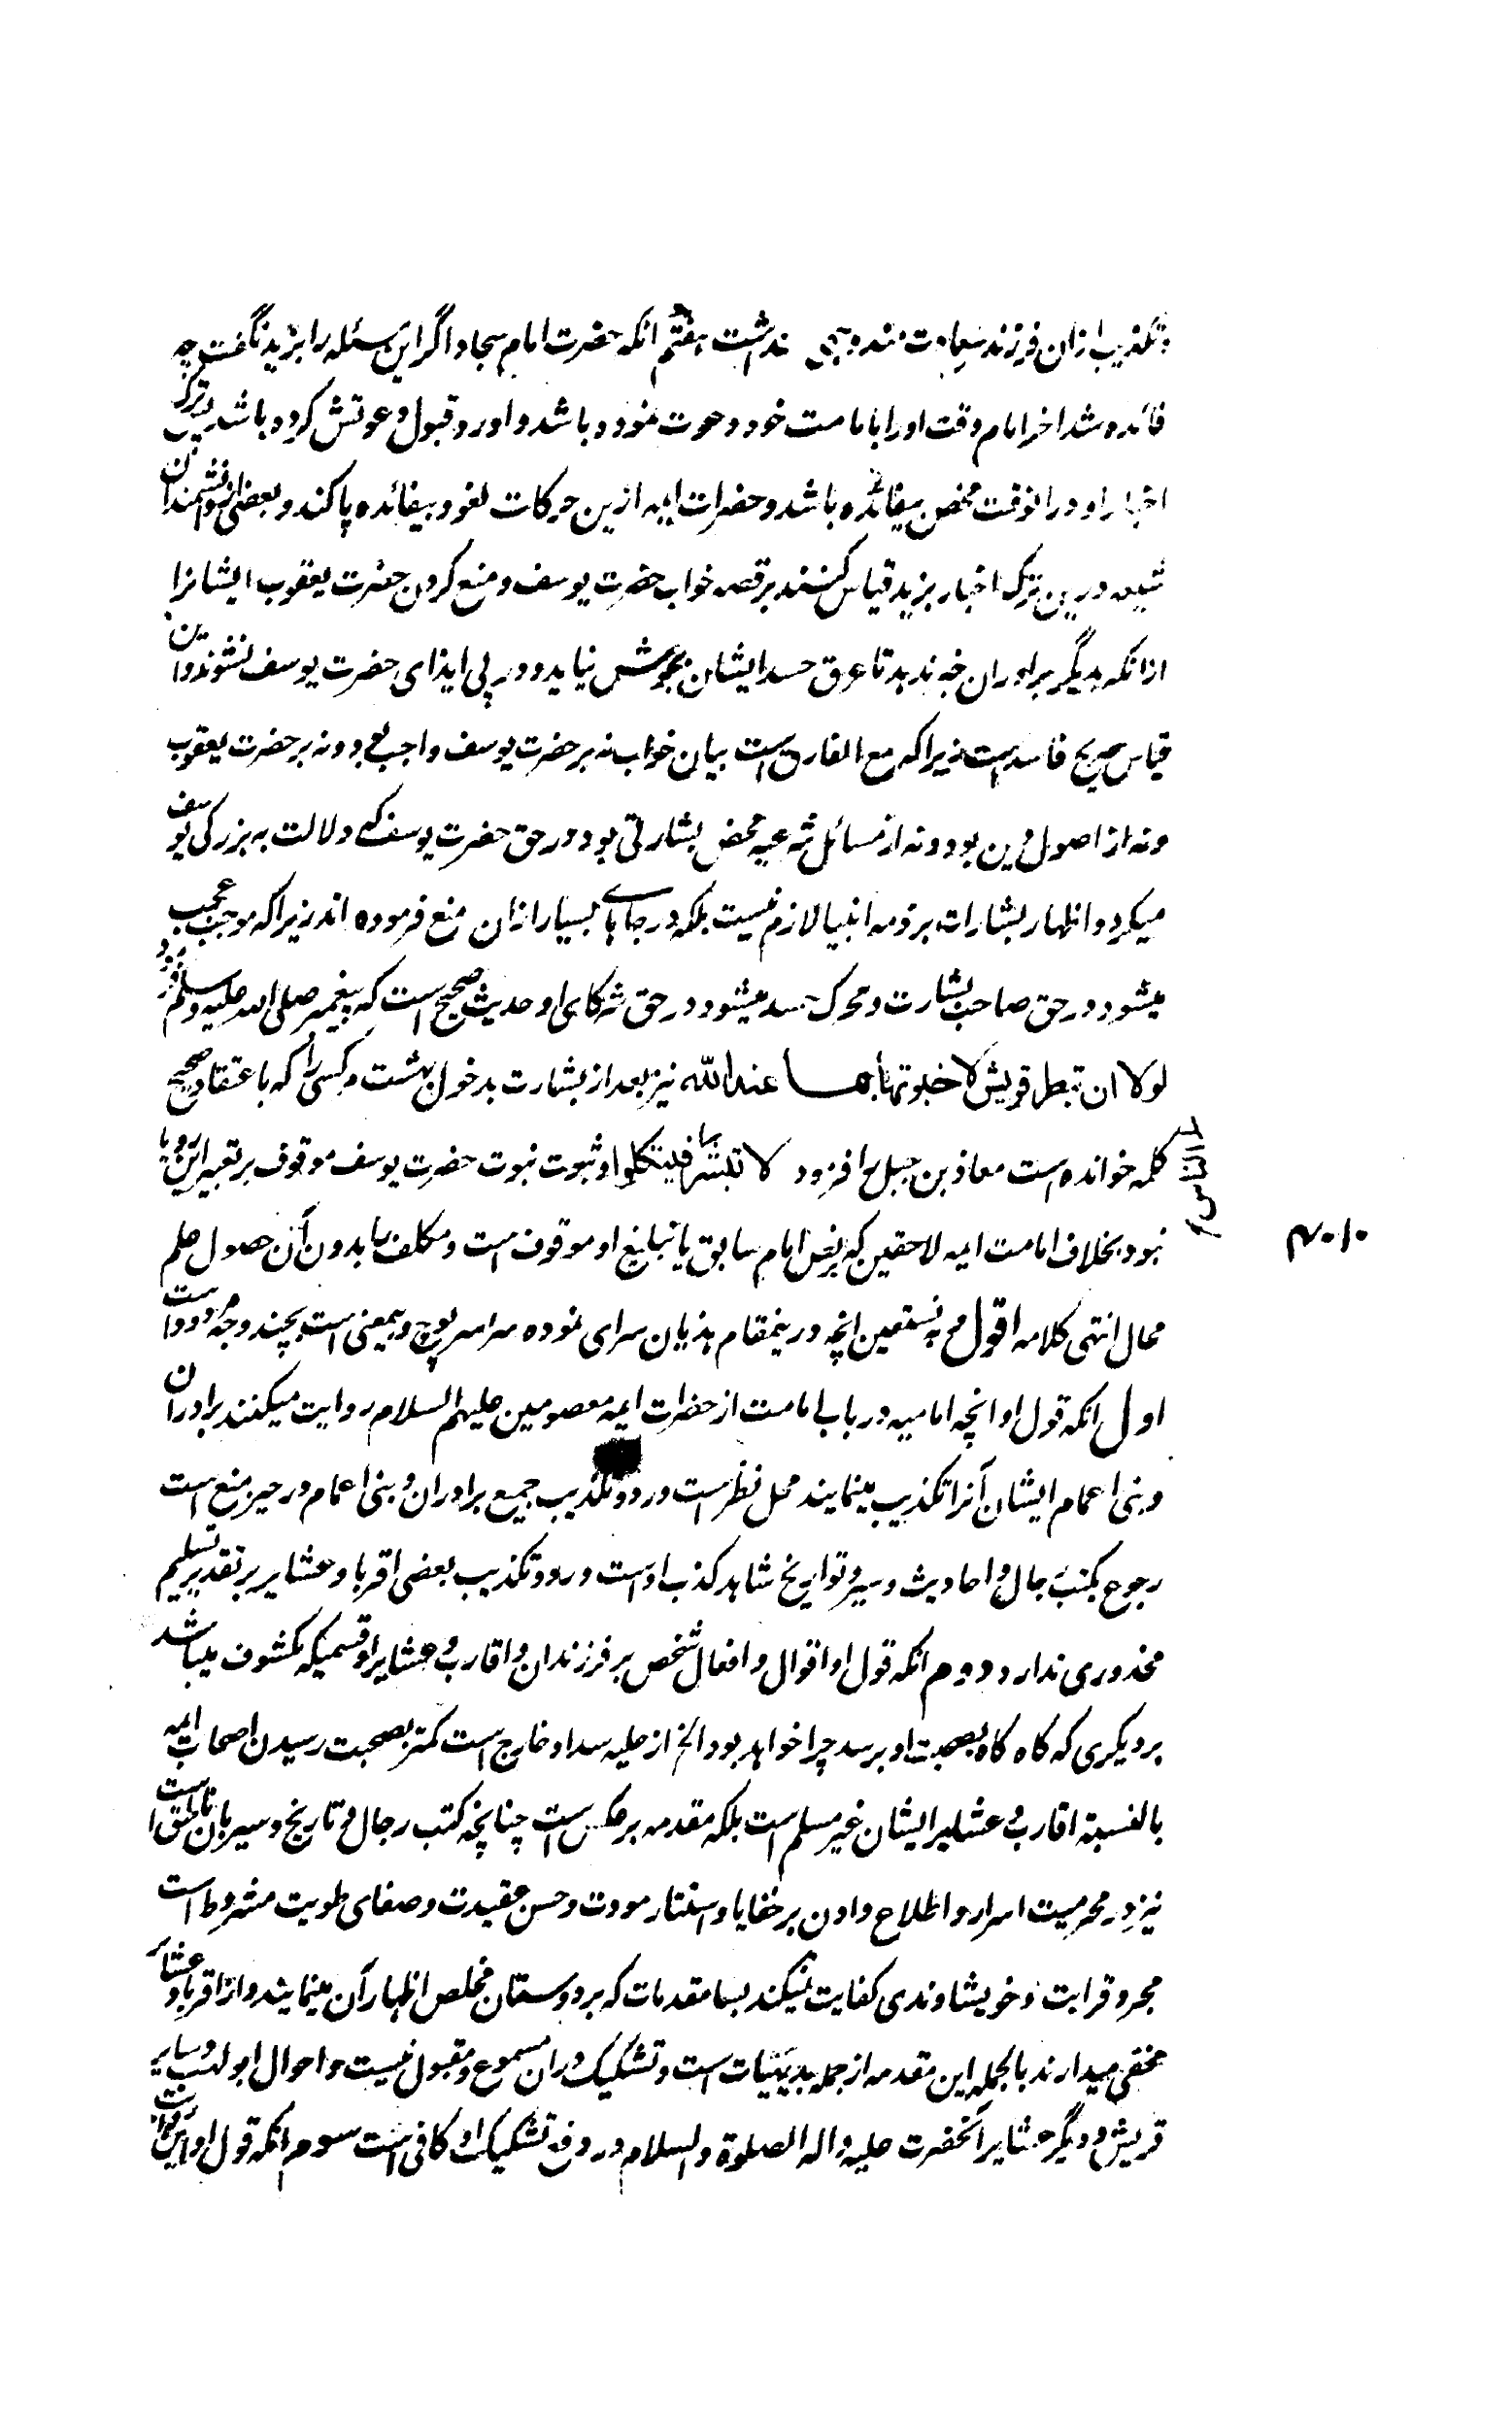 تکذیب ازان فرزند سعادت منده وجهی نداشت هفتم انکه حضرت امام سجاد اگر این مسئله را بزید نگفت چه
فائده شد اخر امام وقت اورا بامامت خود دعوت نموده باشد و او رد قبول دعوتش کرده باشد پس ترک
اخبار او در انوقت محض بیفائده باشد و حضرات ایمه ازین حرکات لغو و بیفائده پاکند و بعضی از دانشمندان
شیعه درین ترک اخبار بزید قیاس کنند بر قصه خواب حضرت یوسف و منع کردن حضرت یعقوب ایشانرا
ازانکه بدیگر برادران خبر ندهد تا عرق حسد ایشان بجوش نیاید و در پی ایذای حضرت یوسف نشوند و این
قیاس صریح فاسد است زیراکه مع الفارق است بیان خواب نه بر حضرت یوسف واجب بود و نه بر حضرت یعقوب
و نه از اصول دین بود و نه از مسائل شرعیه محض بشارتی بود در حق حضرت یوسف که دلالت به بزرگی یوسف
میکرد و اظهار بشارات بر ذمه انبیا لازم نیست بلکه در جاهای بسیار ازان منع فرموده اند زیراکه موجب عجب
میشود در حق صاحب بشارت و محرک حسد میشود در حق شرکای او حدیث صحیح است که پیغمبر صلی الله علیه وسلم فرمود
لولا ان تبطر قریش لاخبرتها بما لها عند الله نیز بعد از بشارت بدخول بهشت هر کسی را که باعتقاد صحیح
کلمه خوانده است معاذ بن جبل را فرمود لا تبشرهم بها فیتکلوا و ثبوت نبوت حضرت یوسف موقوف بر تعبیر این رویا
نبود بخلاف امامت ایمه لاحقین که بر نص امام سابق یا تبلیغ او موقوف است و مکلف را بدون آن حصول علم
محال انتهی کلامه اقول و به نستعین انچه درینمقام هذیان سرای نموده سراسر پوچ و بیمعنی است بچند وجه مردود است
اول انکه قول او انچه امامیه در باب امامت از حضرات ایمه معصومین علیهم السلام روایت میکنند برادران
و بنی اعمام ایشان آنرا تکذیب مینمایند محل نظر است و رد و تکذیب جمیع برادران و بنی اعمام در حیز منع است
رجوع بکتب رجال و احادیث و سیر و تواریخ شاهد کذب اوست و رد و تکذیب بعضی اقربا و عشایر بر تقدیر تسلیم
محذوری ندارد دوم انکه قول او اقوال و افعال شخص بر فرزندان و اقارب و عشایر او قسمیکه مکشوف میباشد
بر دیگری که گاه گاه بصحبت او برسد چرا خواهد بود الخ از حلیه سداد خارج است کمتر بصحبت رسیدن اصحاب ایمه
بالنسبته اقارب و عشایر ایشان غیر مسلم است بلکه مقدمه بر عکس است چنانچه کتب رجال و تاریخ و سیر بان ناطق است
نیز در محرمیت اسرار و اطلاع دادن بر خفایا و استتار مودت و حسن عقیدت و صفای طویت مشروط است
مجرد قرابت و خویشاوندی کفایت نمیکند بسا مقدمات که بر دوستان مخلص اظهار آن مینمایند و از اقربا و عشایر
مخفی میدارند بالجمله این مقدمه از جمله بدیهیات است و تشکیک دران مسموع و مقبول نیست و احوال ابو لهب و سایر
قریش و دیگر عشایر آنحضرت علیه و اله الصلوة والسلام در دفع تشکیک او کافی است سوم انکه قول او این